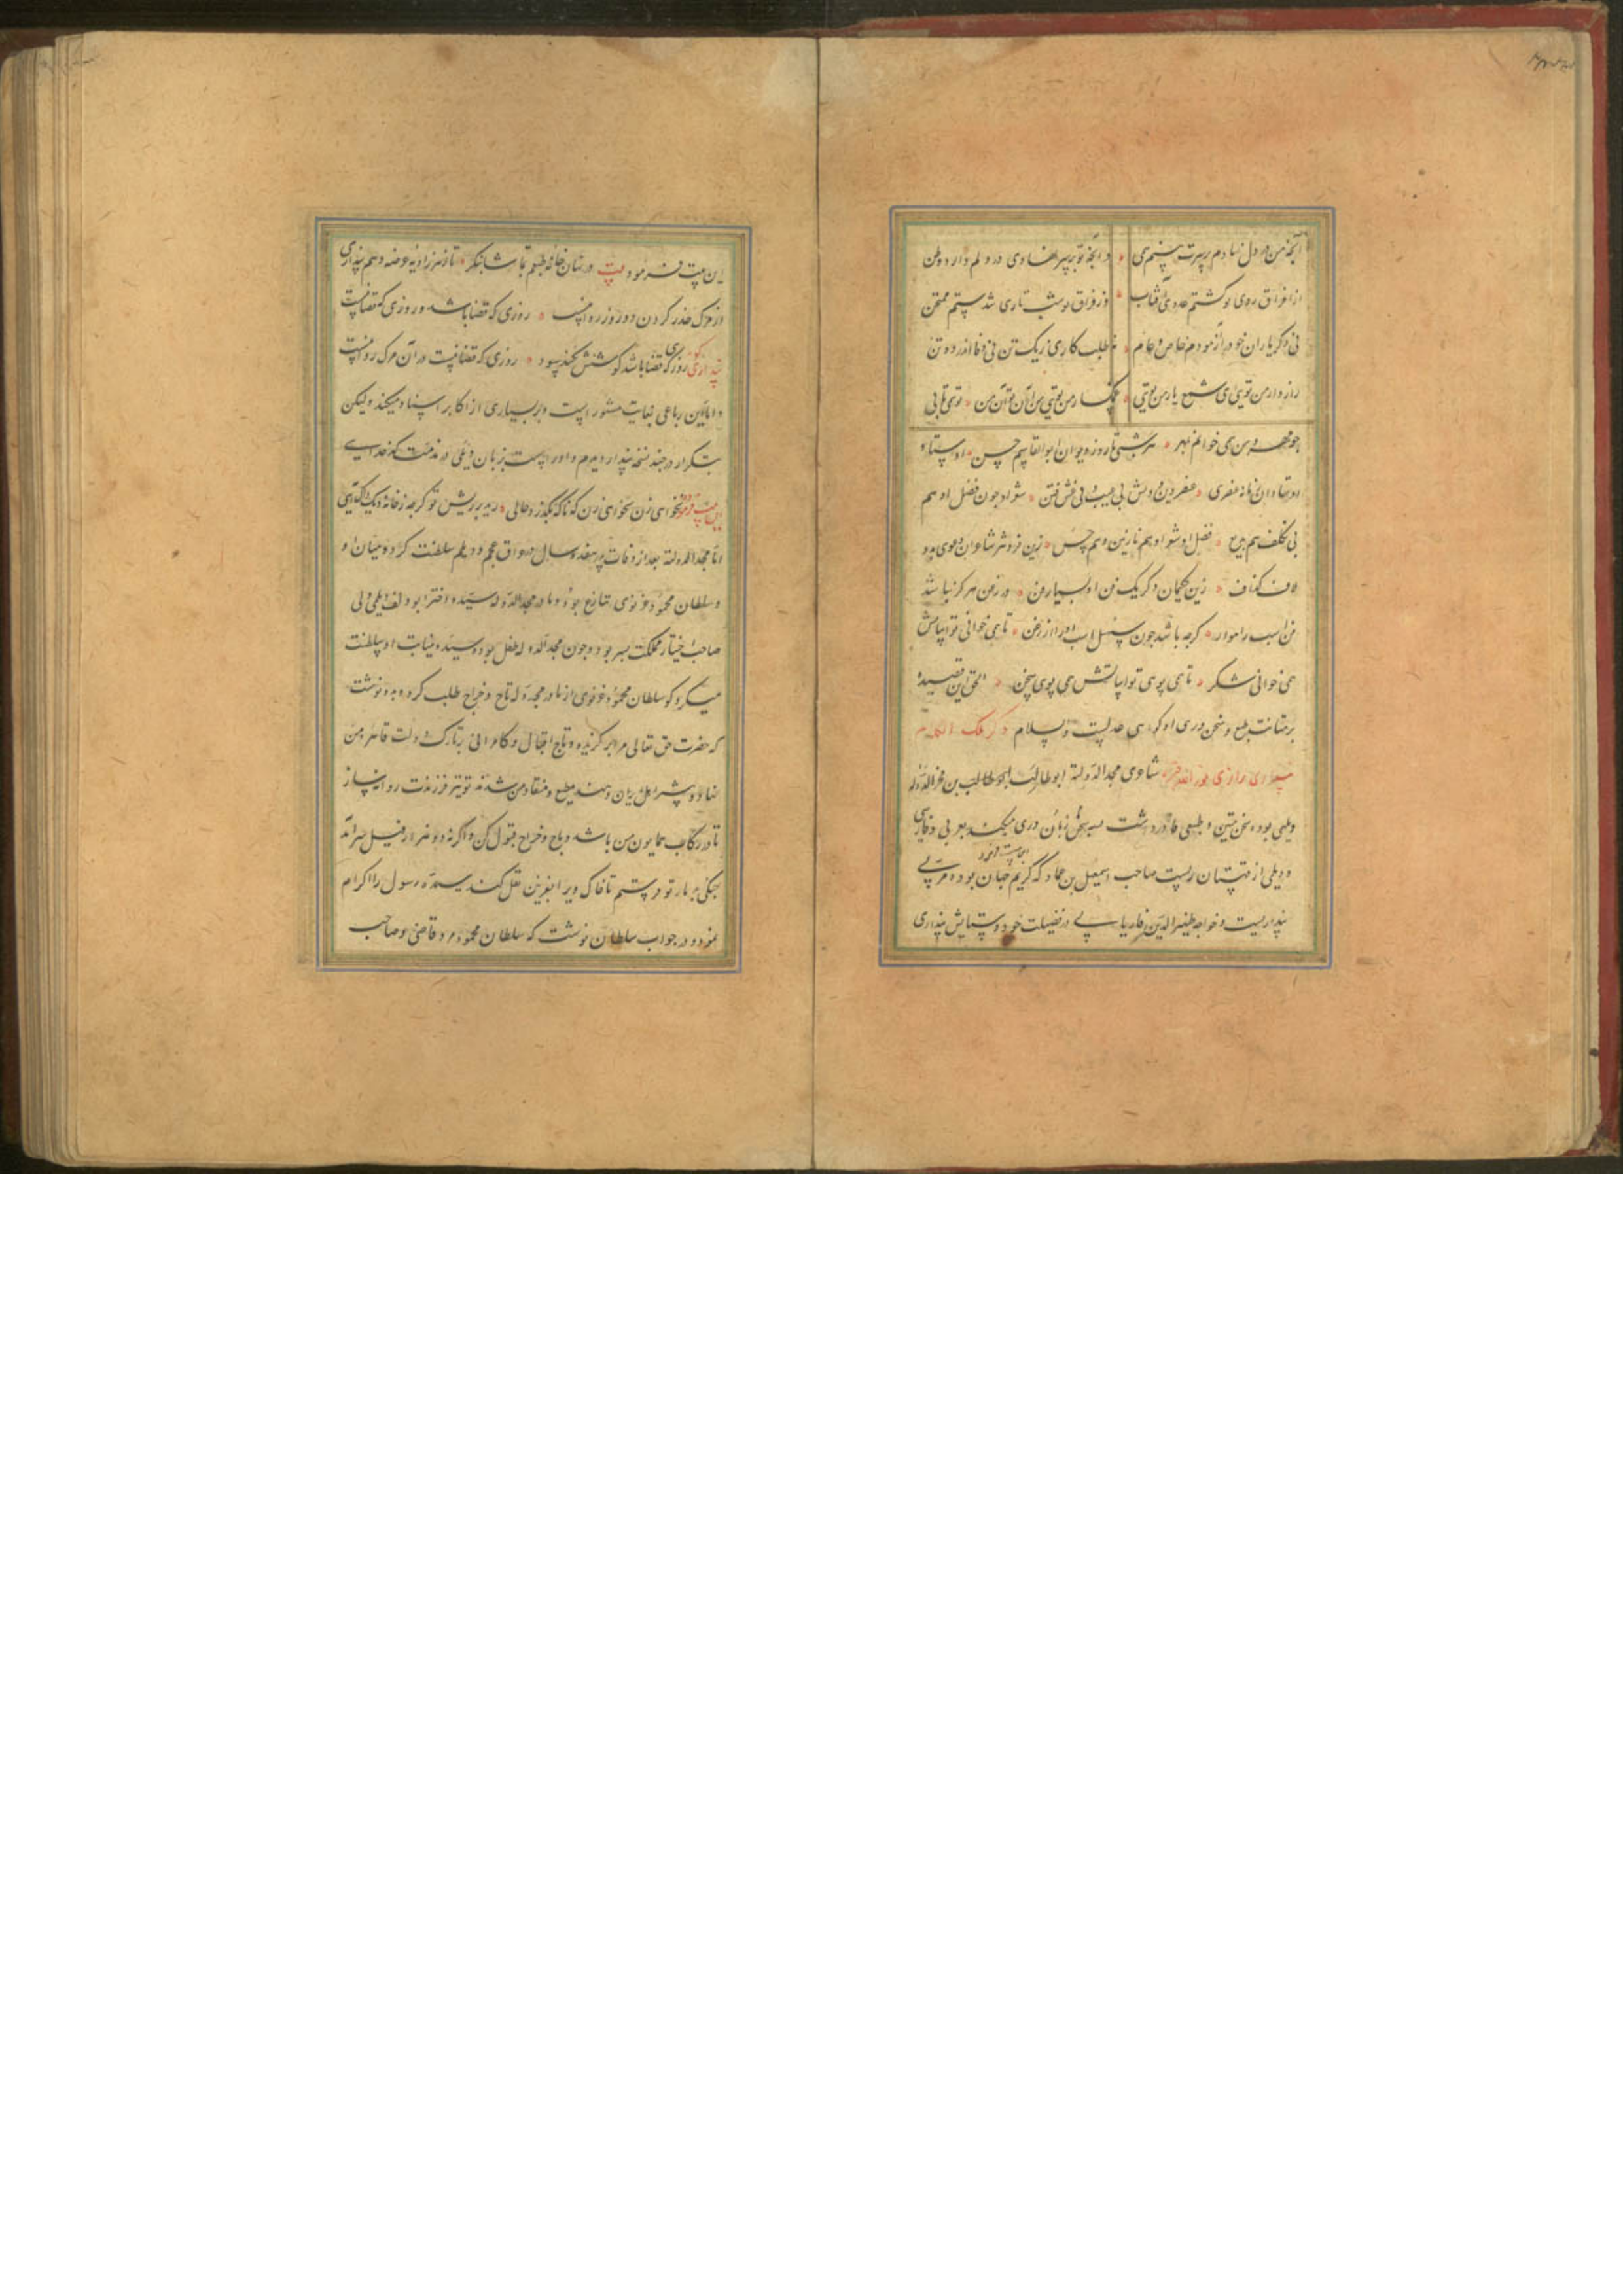 آنچه من در دل نهادم بر سرت بینم همی ۰ و آنچه تو بر سر نهادی در دلم دارد وطن
از فراق روی تو گشتم عدوی آفتاب ۰ وز فراق تو شب تاری شدستم ممتحن
نی دگر یاران خود را آزمودم خاص و عام ۰ نی طلب کاری ز یک تن نی وفا اندر دو تن
رازدار من تویی ای شمع یار من تویی ۰ غمگسار من تویی من آن تو آن من ۰ تو همی تابی
چو مهر و من همی خوانم بهر ۰ هر شبی تا روز دیوان ابوالقاسم حسن ۰ اوستاد
اوستادان زمانه عنصری ۰ عنصرین و دینش بی عیب و دلش بی فتن ۰ شعر او چون فضل او هم
بی تکلف هم بدیع ۰ فضل او شعر او هم نازنین و هم حسن ۰ زین فروتر شاعران دعوی بود
لاف گزاف ۰ زین حکیمان دگر یک فن او بسیار فن ۰ در زمن هرگز نباشد
فن اسب راهوار ۰ گرچه باشد چون سهیل اسب آواز زغن ۰ تا همی خوانی تو ابیاتش
همی خوانی شکر ۰ تا همی بویی تو ابیاتش همی بویی سخن ۰ الحق این قصیده
بر متانت طبع و سخن وری او گواهی عدلست والسلام ذکر ملک الکلام
پنداری رازی نور الله قبره شاعری مجد الدوله ابوطالب بن فخر الدوله
دیلمی بوده سخن متین و طبعی قادر داشت به سه زبان سخن وری میکند بعربی و فارسی
و دیلمی از قهستان ریست صاحب اسمعیل بن عباد که کریم جهان بوده مربی
پنداریست و خواجه ظهیر الدین فاریابی در فضیلت خود و ستایش پنداری
این بیت فرموده بیت در نهان خانه طبعم بتماشا بنگر ۰ تا ز هر زاویه عرضه دهم پنداری
از مرگ حذر کردن دو روز روا نیست ۰ روزی که قضا باشد و روزی که قضا نیست
پنداری روزی که قضا باشد کوشش نکند سود ۰ روزی که قضا نیست در آن مرگ روا نیست
و اما این رباعی بغایت مشهور است و بر بسیاری از اکابر اسناد میکنند ولیکن
بتکرار در چند نسخه پندار دیدم و او راست بزبان دیلمی در مذمت کدخدایی
اما مجد الدوله بعد از وفات پدر هفده سال در عراق عجم و دیلم سلطنت کرد و میان او
و سلطان محمود غزنوی تنازع بود و مادر مجد الدوله سیده دختر ابودلف دیلمی ولی
صاحب اختیار مملکت پسر بود و چون مجد الدوله طفل بود سیده بنیابت او سلطنت
میکرد گویند سلطان محمود غزنوی از مادر مجد الدوله تاج و خراج طلب کرد و بدو نوشت
که حضرت حق تعالی مرا برگزیده و تاج اقبال و کامرانی بر تارک دولت قاهره من
نهاد و بیشتر اهل ایران و هند مطیع و منقاد من شدند تو نیز فرزندت روانه ساز
تا در رکاب همایون من باشد و باج و خراج قبول کن و اگر نه دو هزار فیل سرآمد
جنگی بدیار تو فرستم تا خاک ری را بغزنین نقل کنند سیده رسول را اکرام
نمود و در جواب سلطان نوشت که سلطان محمود مرد غازی و صاحب